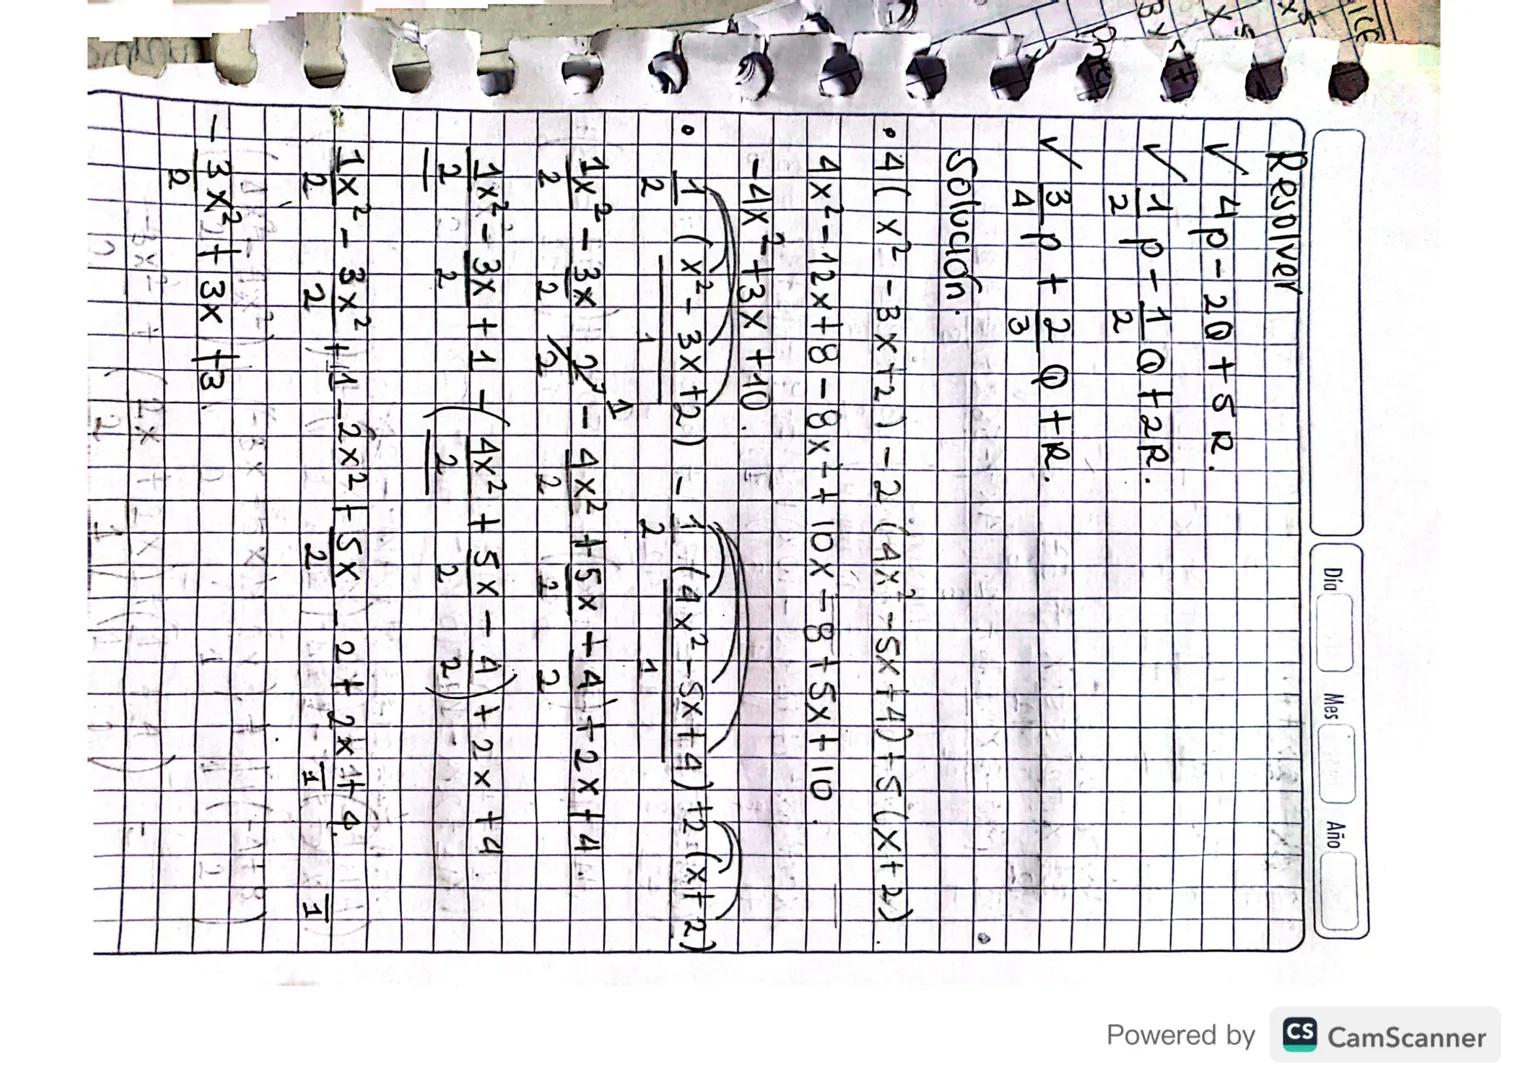 Día Mes Año
Resolver
✓ 4p - 2Q + 5R.
✓ 1/2 p - 1/2 Q + 2R.
✓ 3/4 p + 2/3 Q + R.
Solución.
• 4(x² - 3x + 2) - 2(4x² - 5x + 4) + 5(x + 2).
4x² - 12x + 8 - 8x² + 10x - 8 + 5x + 10.
-4x² + 3x + 10.
• 1/2 (x² - 3x + 2)/1 - 1/2 (4x² - 5x + 4)/1 + 2(x + 2)
1x²/2 - 3x/2 2/2 1 - 4x²/2 + 5x/2 + 4/2 + 2x + 4.
1x²/2 - 3x/2 + 1 - (4x²/2 + 5x/2 - 4/2) + 2x + 4.
1x²/2 - 3x²/2 + 1 - 2x² + 5x/2 - 2 + 2x/1 + 4/1.
- 3x²/2 + 3x + 3.
Powered by CS CamScanner